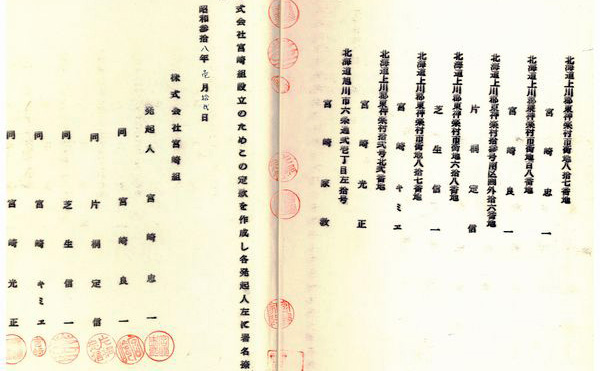 北海道上川郡東神楽村市街地八拾七番地
宮崎忠一
北海道上川郡東神楽村市街地百八番地
宮崎良一
北海道上川郡東神楽村拾参号南区画外拾六番地
片桐定信
北海道上川郡東神楽村市街地六拾八番地
芝生信一
北海道上川郡東神楽村市街地八拾七番地
宮崎キミエ
北海道上川郡東神楽村拾弐号北弐番地
宮崎光正
北海道旭川市六条通弐壱丁目左拾号
宮崎家敦
式会社宮崎組設立のためこの定款を作成し各発起人左に署名捺
昭和参拾八年壱月拾弐日
株式会社宮崎組
発起人 宮崎忠一
同 宮崎良一
同 片桐定信
同 芝生信一
同 宮崎キミエ
同 宮崎光正